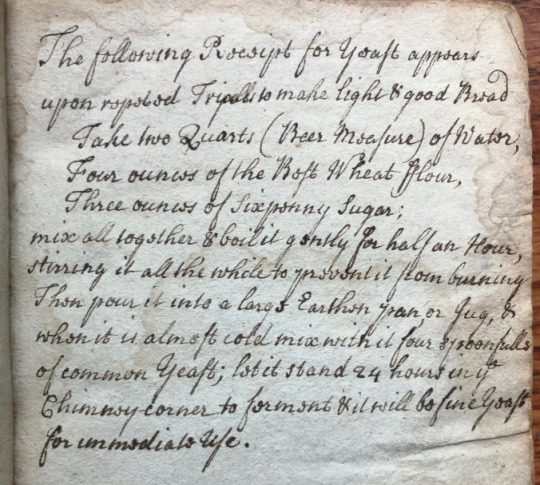 The following Receipt for Yeast appears
upon repeted Trialls to make light & good Bread
Take two Quarts (Beer Measure) of Water,
Four ounces of the Best Wheat Flour,
Three ounces of Sixpenny Sugar;
mix all together & boil it gently for half an Hour,
stirring it all the while to prevent it from burning
Then pour it into a large Earthen pan, or Jug, &
when it is almost cold mix with it four spoonfulls
of common Yeast; let it stand 24 hours in ye
Chimney corner to ferment & it will be fine Yeast
for immediate Use.